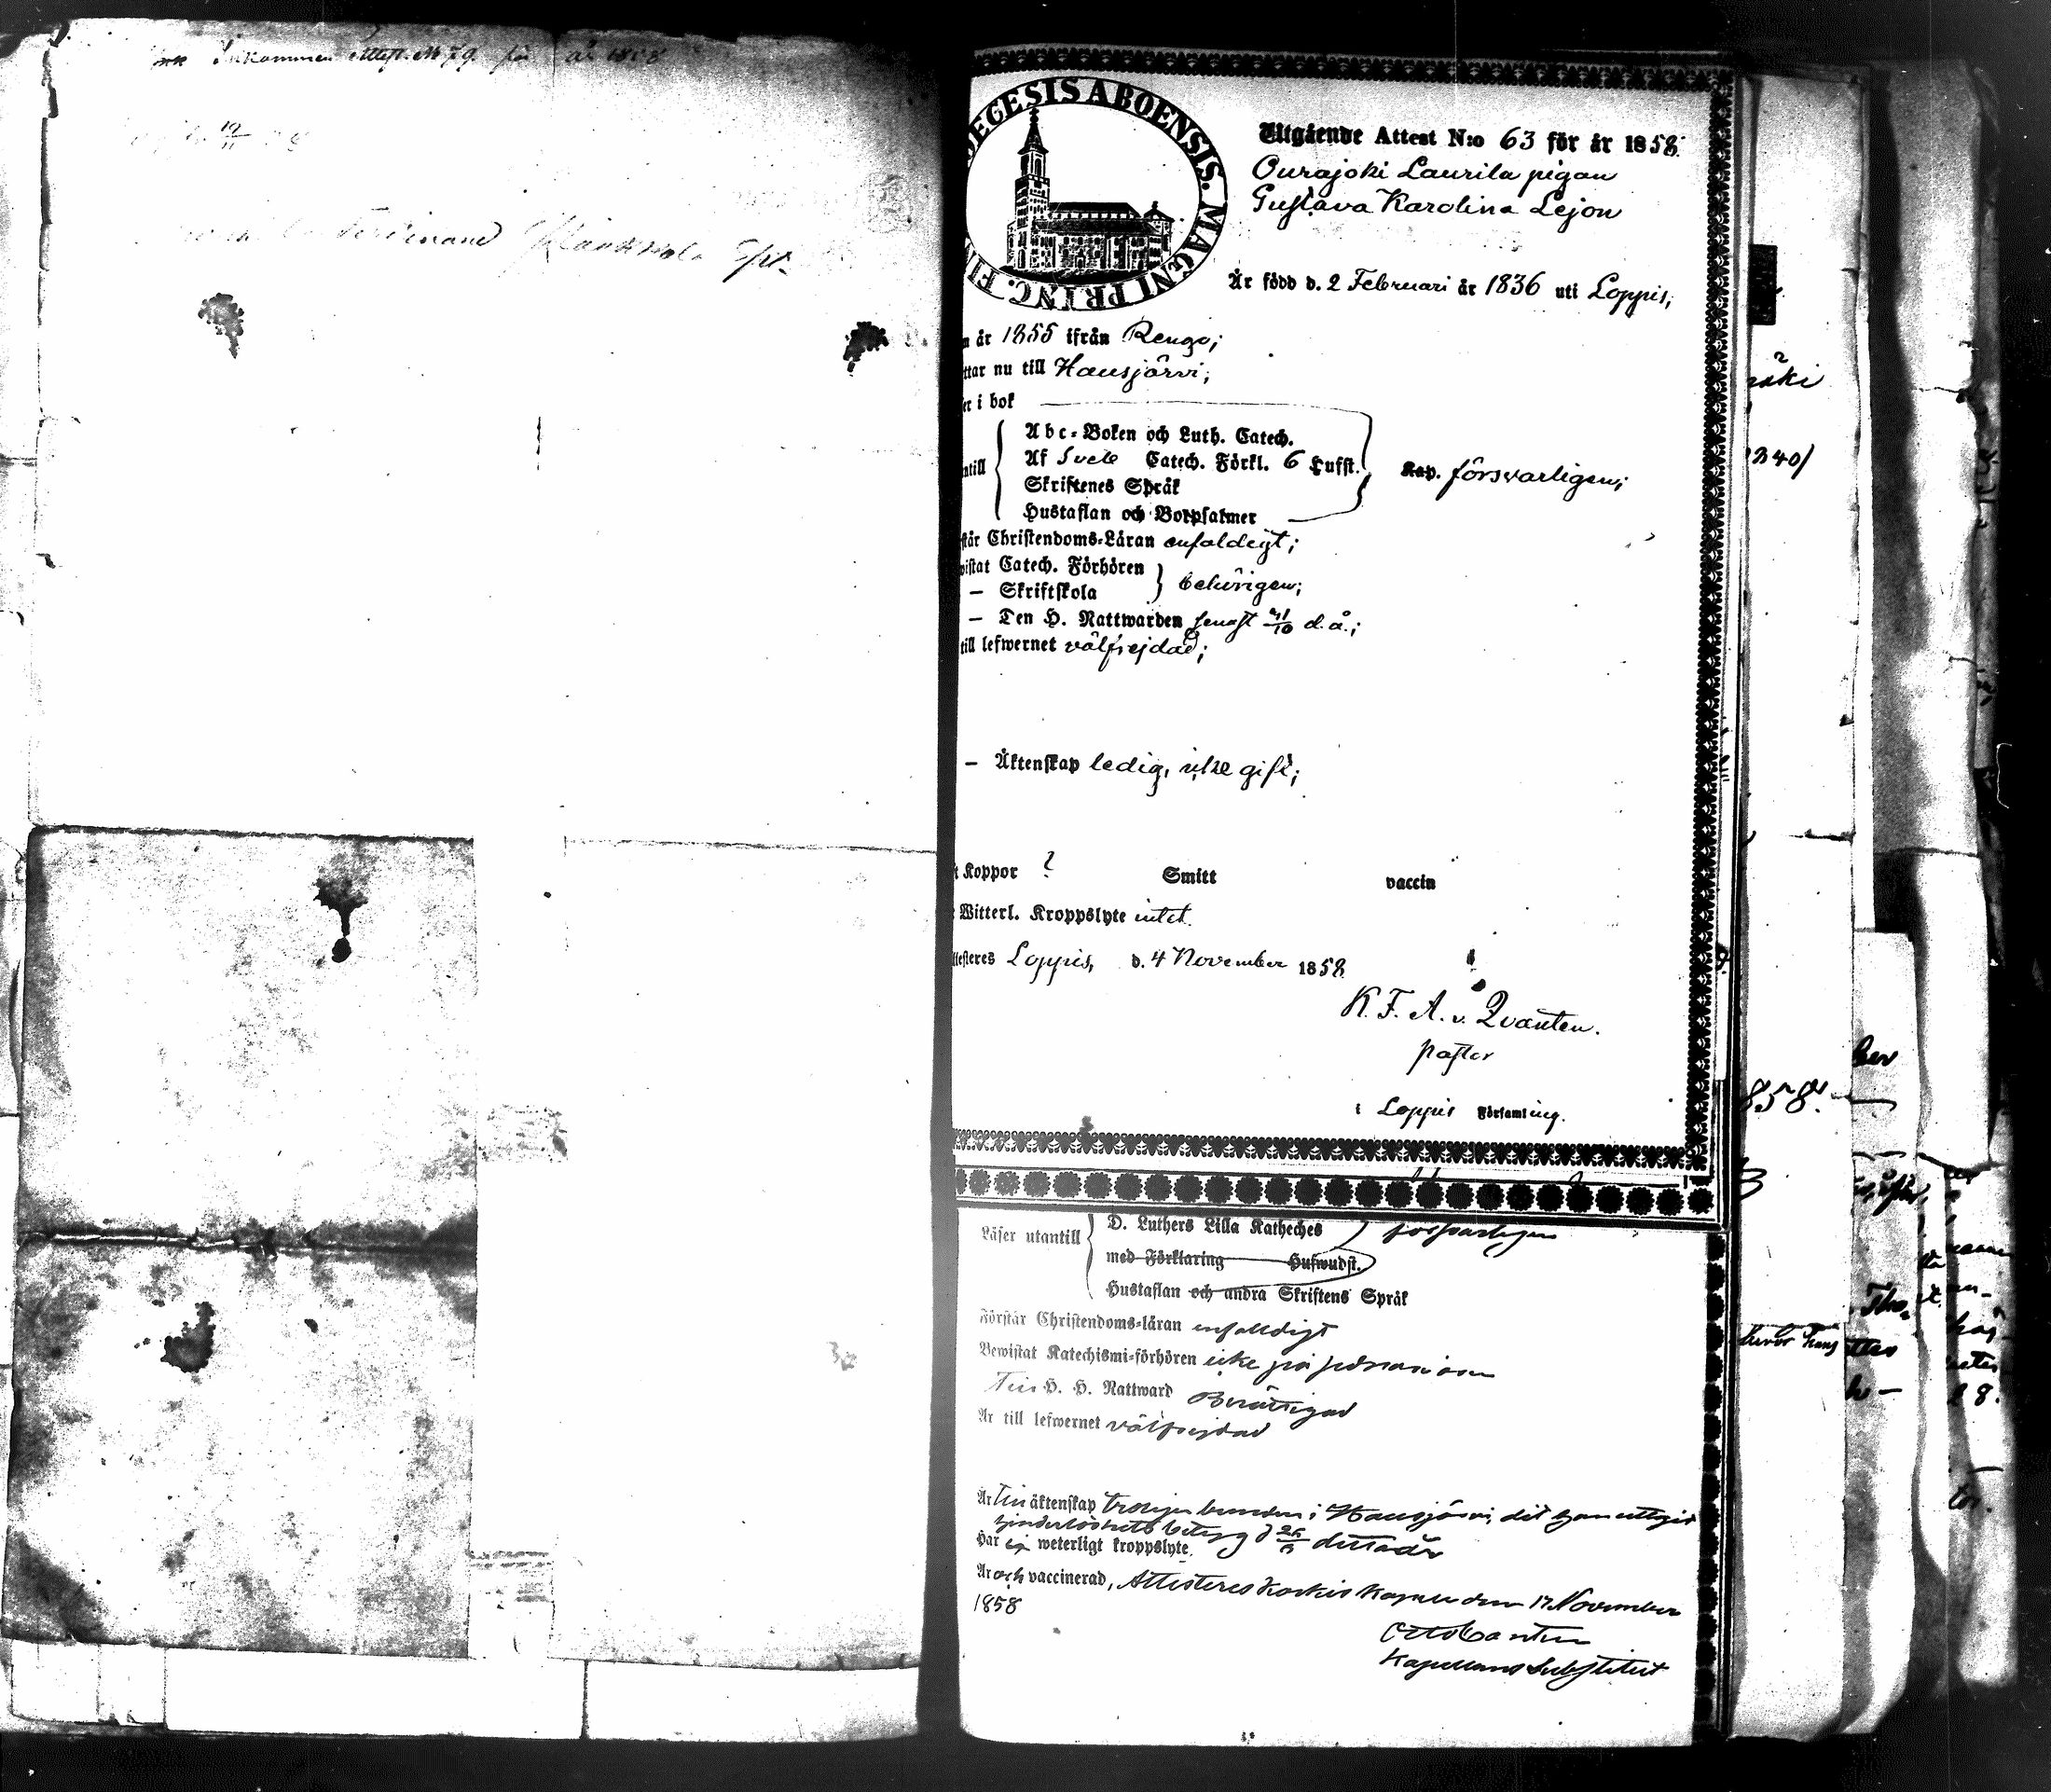 Inkommen Attest. N 79. för år 1858
19/11 58
Ferdinand
DIECESIS ABOENSIS. MAGNI PRINC. FIN
Utgående Attest N:o 63 för år 1858.
Ourajoki Laurila pigan
Gustava Karolina Lejon
Är född d. 2 Februari år 1836 uti Loppis,
n år 1855 ifrån Rengo;
ttar nu till Hausjärvi;
er i bok
Abc-Boken och Luth. Catech.
ntill Af Sveb Catech. Förkl. 6 Hufst. Kap. försvarligen;
Skriftenes Språk
Hustaflan och Botpsalmer
står Christendoms-Läran enfaldigt;
wistat Catech. Förhören
— Skriftskola behörigen;
— Den H. Nattwarden senast 31/10 d.å.;
till lefwernet välfrejdad;
— Äktenskap ledig, icke gift;
t Koppor ? Smitt vaccin
Witterl. Kroppslyte intet.
ttesteres Loppis, d. 4 November 1858
K. F. A. v. Qvanten.
pastor
i Loppis Församling.
Läser utantill D. Luthers Lilla Katheches försvarligen
med Förklaring Hufwudst.
Hustaflan och andra Skriftens Språk
Förstår Christendoms-läran enfaldigt
Bewistat Katechismi-förhören icke på sednare åren
Till H. H. Nattward Berättigad
Är till lefwernet välfrejdad
Är till äktenskap troligen bunden i Hausjärvi, dit han uttagit
hinderlöshets betyg d dettaår
Har ej weterligt kroppslyte
Är och vaccinerad, Attesteras Kapell den 17 November
1858
Otto
Kapellans Substitut
räki
1340/
858.
28.